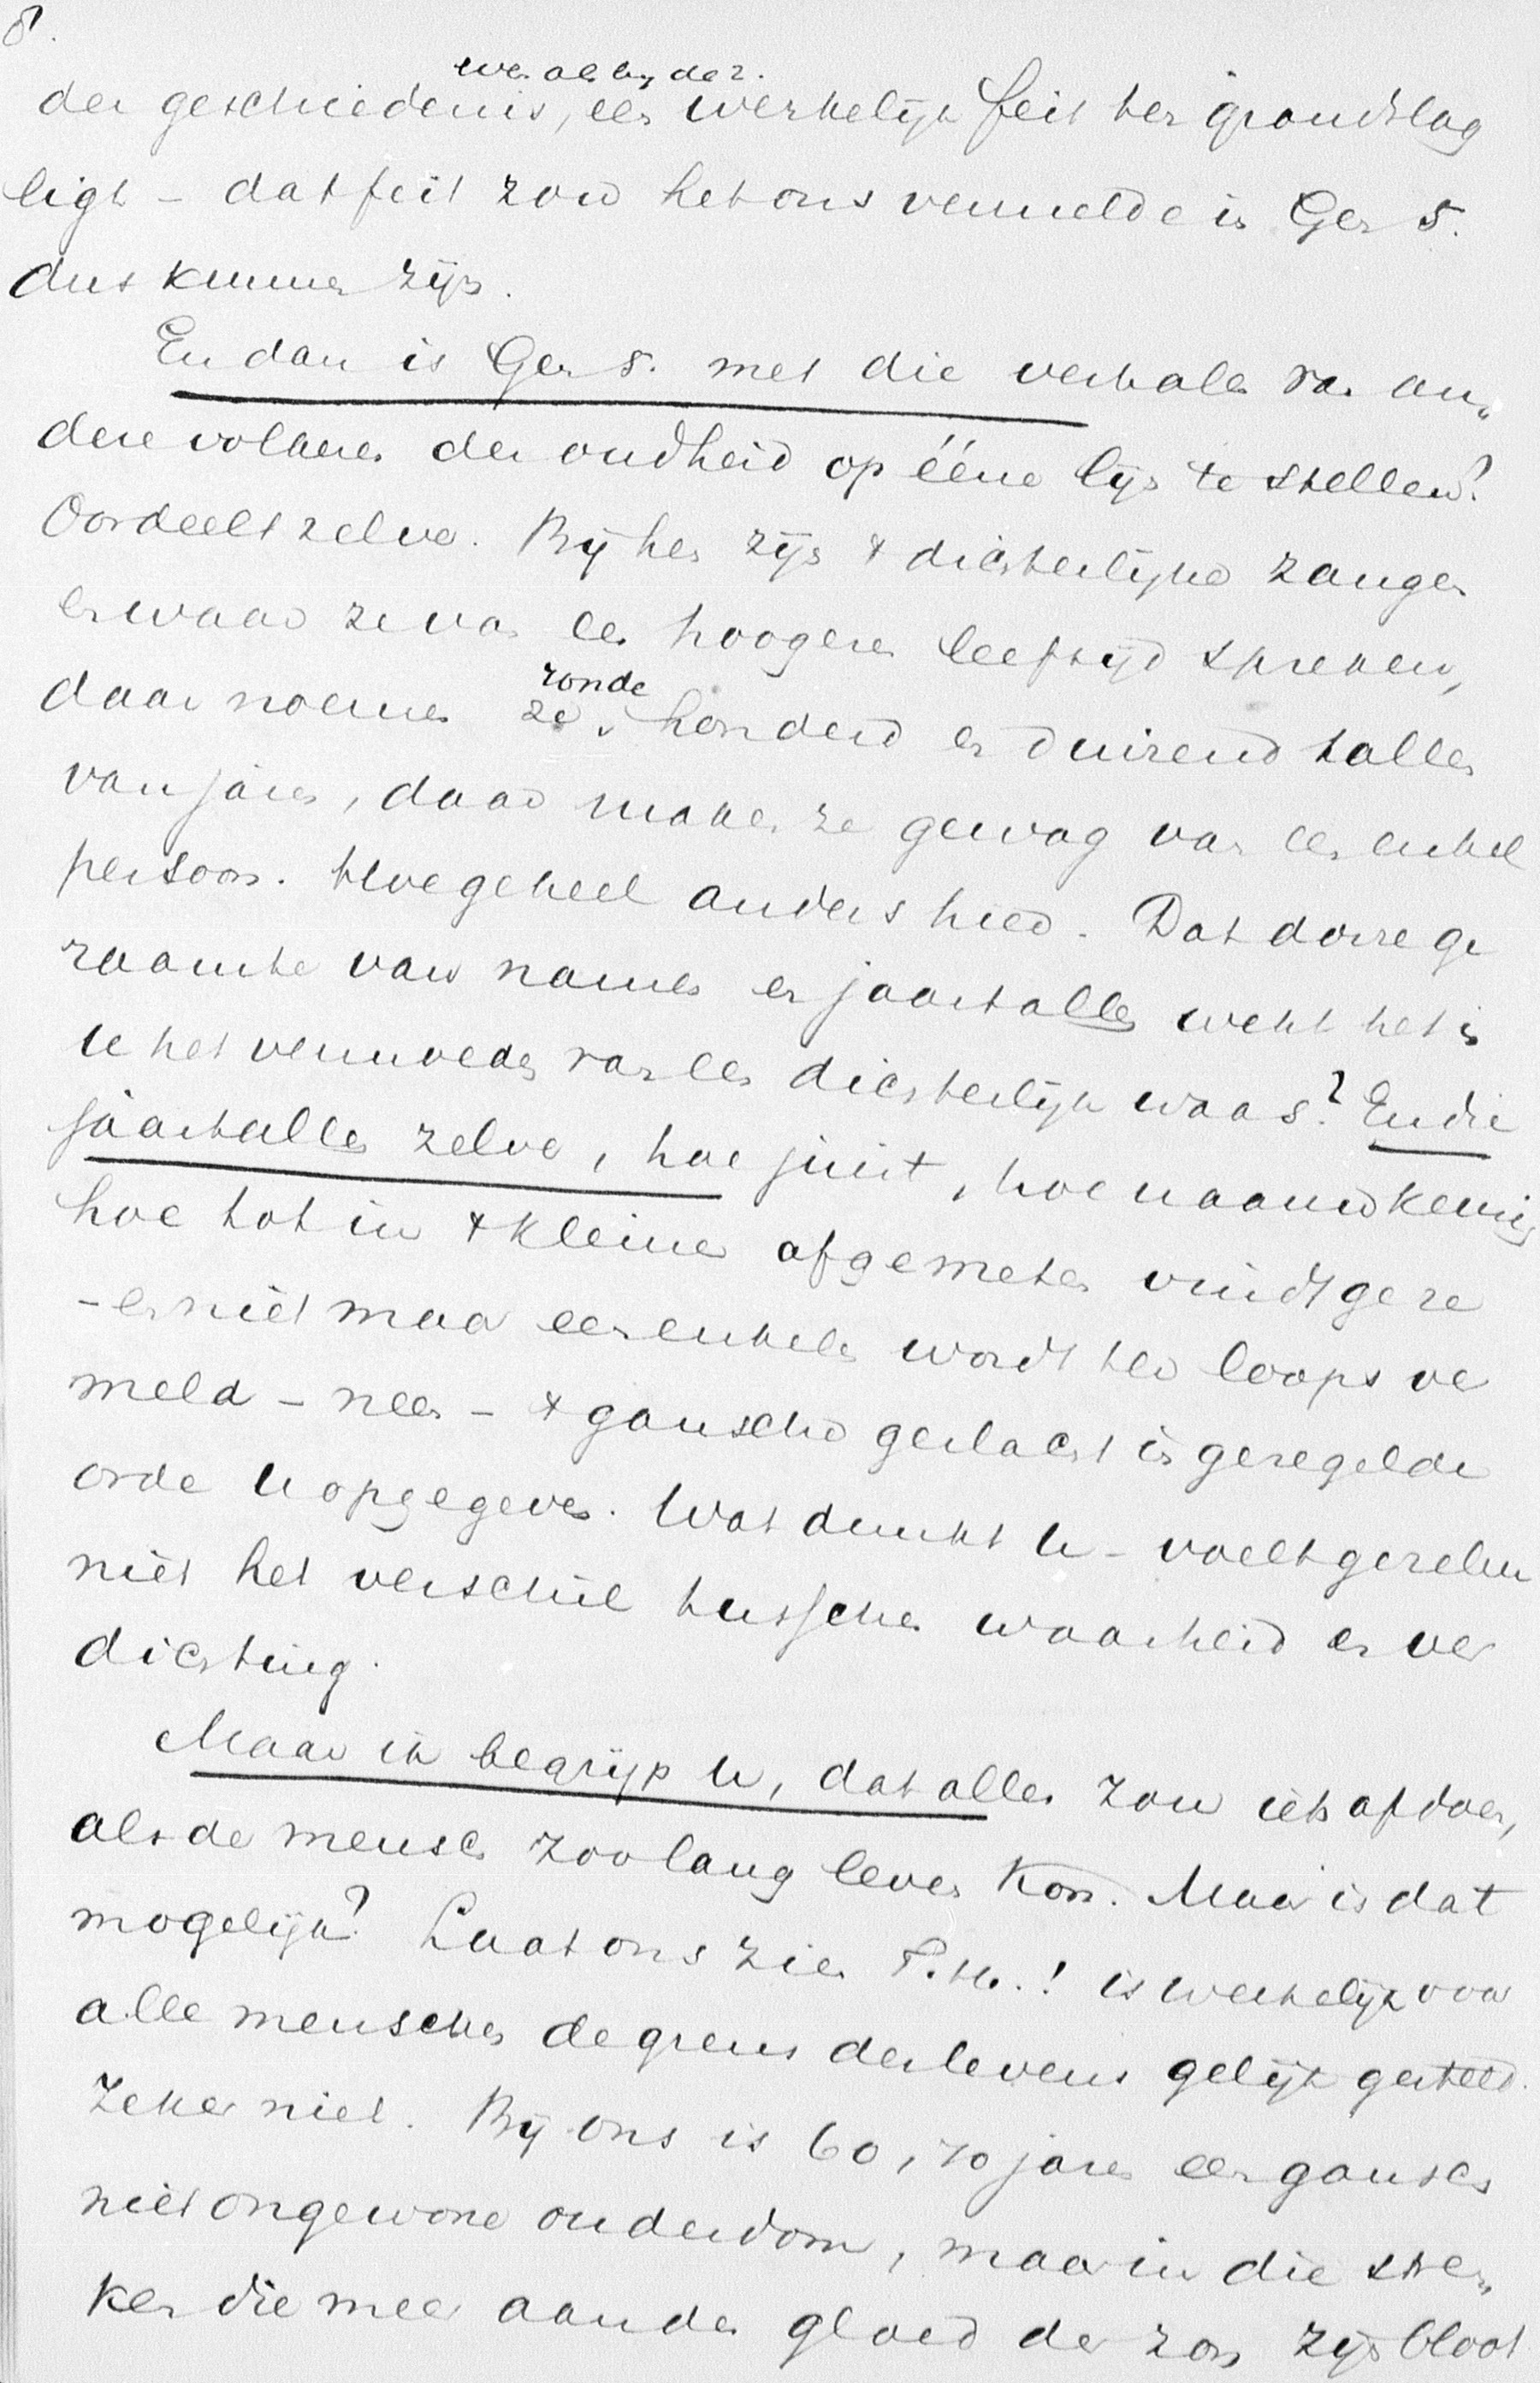 8.
der geschiedenis, een werkelijk feit ten grondslag
ligt - dat feit zou het ons vermelde in Gen 5.
dus kunnen zijn.
En dan is Gen 5. met die verhalen van an„
dere volkeren der oudheid op ééne lijn te stellen?
Oordeelt zelve. Bij hen zijn + dichterlijke zangen
en waar ze van een hoogeren leeftijd spreken,
ronde
daar noemen ze honderd en duizend tallen
van jaren, daar maken ze gewag van een enkel
persoon. Hoe geheel anders hier. Dat dorre ge
raamte van namen en jaartallen wekt het in
U het vermoeden van een dichterlijk waas? En die
jaartallen zelve, hoe juist, hoe naauwkeurig
hoe tot in + kleine afgemeten vindt ge ze
- en niet maar een enkele wordt ter loops ver
meld - neen - + gansche geslacht in geregelde
orde U opgegeven. Wat dunkt U - voelt ge zelve
niet het verschil tusschen waarheid en ver
dichting.
Maar ik begrijp U, dat alles zou iets afdoen,
als de mensch zoo lang leven kon. Maar is dat
mogelijk? Laat ons zien T.H.! is werkelijk voor
alle menschen de grens des levens gelijk gesteld.
Zeker niet. Bij ons is 60, 70 jaren een gansch
niet ongewone ouderdom, maar in die stre„
ken die meer aan den gloed der zon zijn bloot